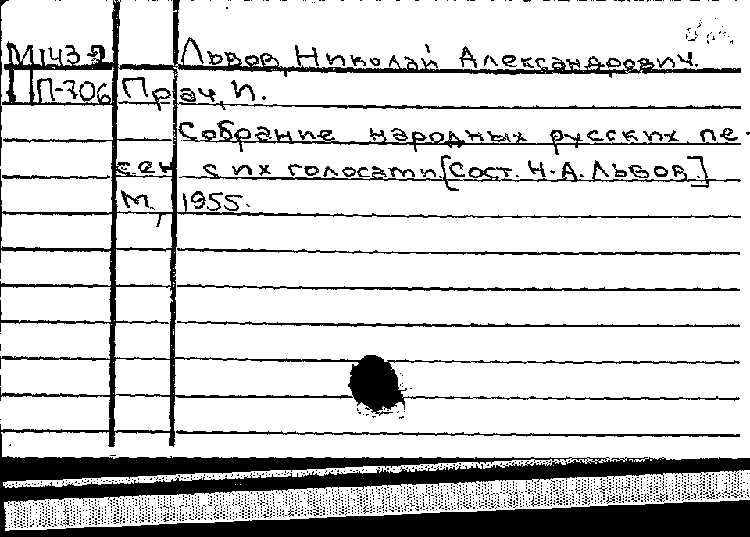 М1432 Львов, Николай Александрович.
П-706 Прач, И.
Собрание народных русских пе-
сен с их голосами [Сост. Н.А. Львов]
М, 1955.